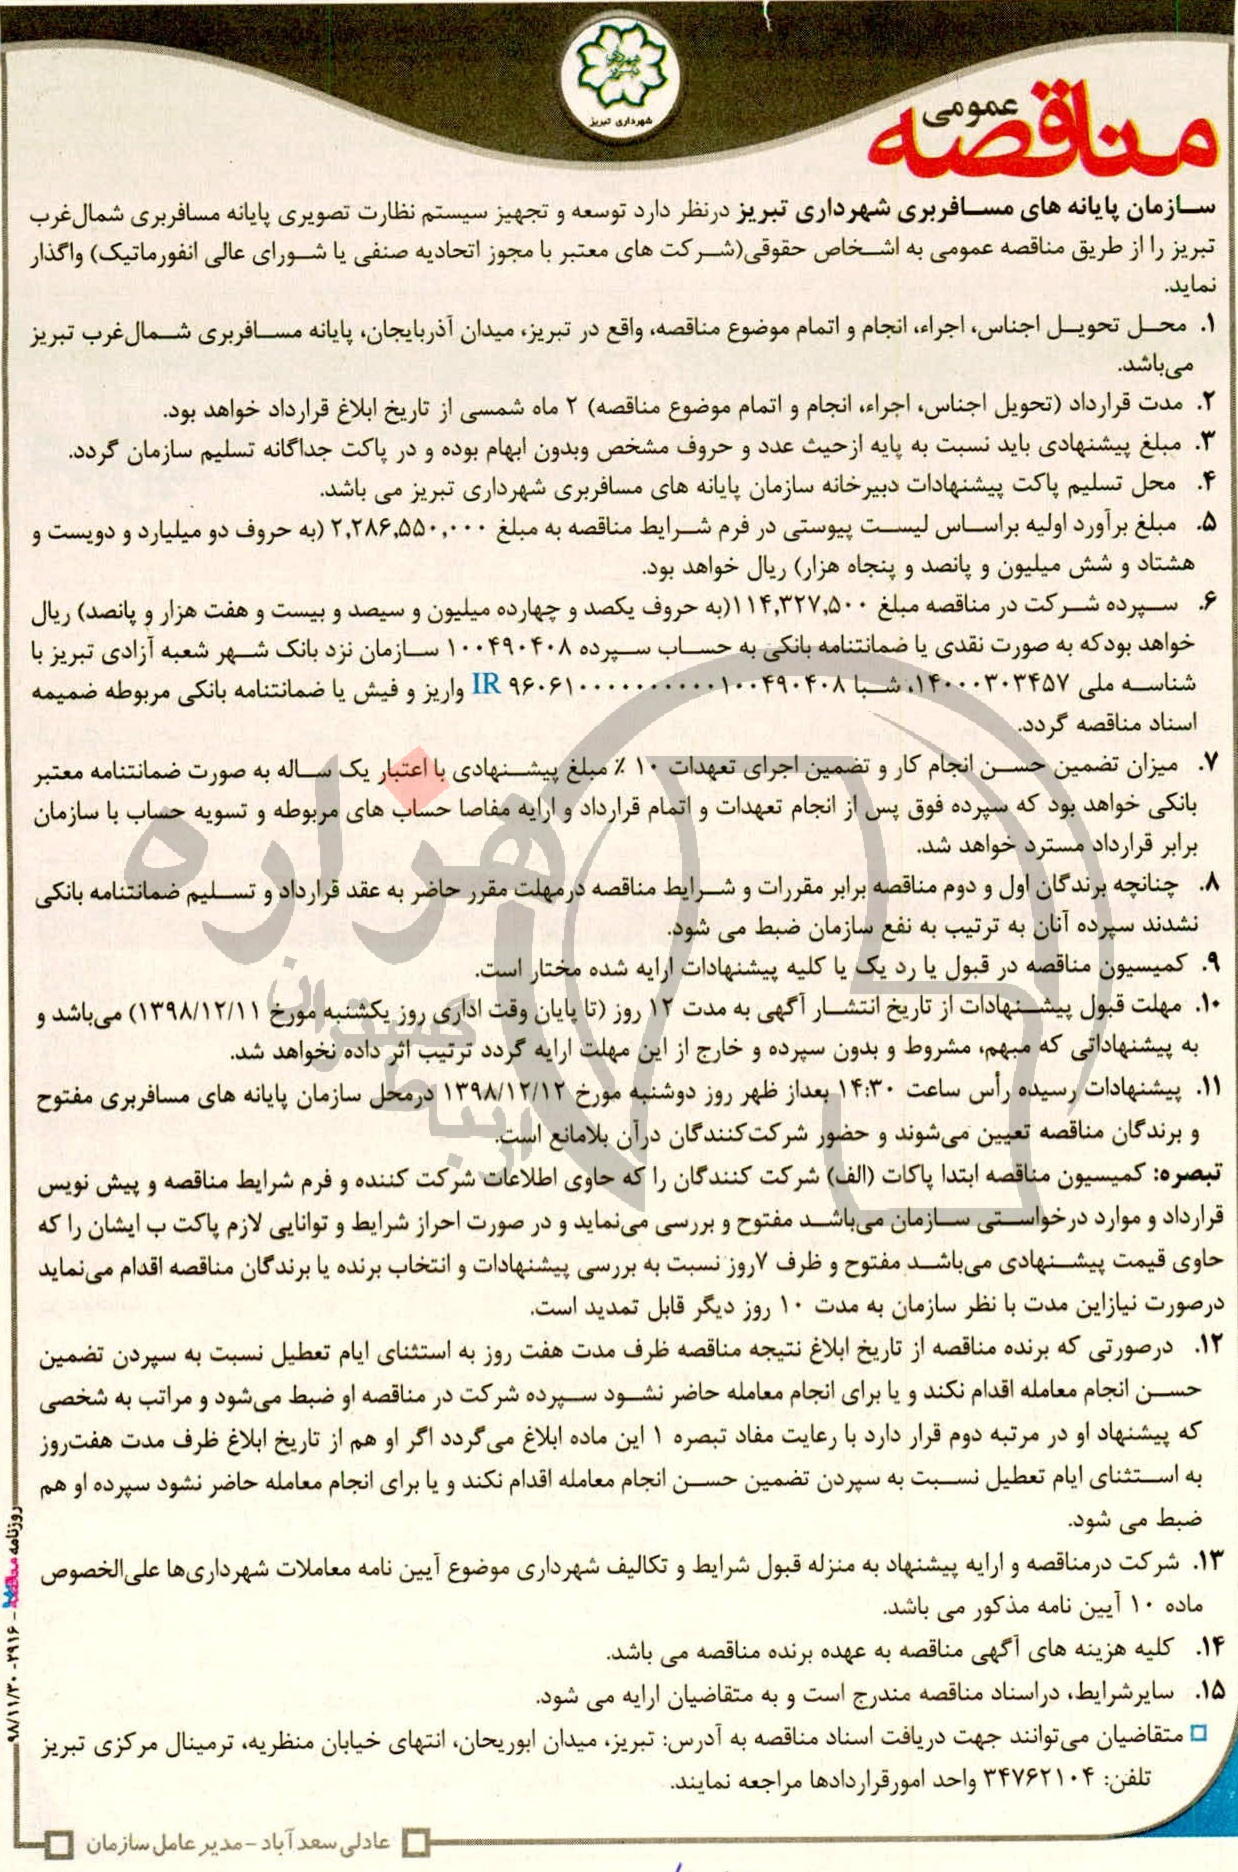 شهرداری تبریز
مناقصه عمومی
سازمان پایانه های مسافربری شهرداری تبریز درنظر دارد توسعه و تجهیز سیستم نظارت تصویری پایانه مسافربری شمال‌غرب
تبریز را از طریق مناقصه عمومی به اشخاص حقوقی(شرکت های معتبر با مجوز اتحادیه صنفی یا شورای عالی انفورماتیک) واگذار
نماید.
۱. محل تحویل اجناس، اجراء، انجام و اتمام موضوع مناقصه، واقع در تبریز، میدان آذربایجان، پایانه مسافربری شمال‌غرب تبریز
می‌باشد.
۲. مدت قرارداد (تحویل اجناس، اجراء، انجام و اتمام موضوع مناقصه) ۲ ماه شمسی از تاریخ ابلاغ قرارداد خواهد بود.
۳. مبلغ پیشنهادی باید نسبت به پایه ازحیث عدد و حروف مشخص وبدون ابهام بوده و در پاکت جداگانه تسلیم سازمان گردد.
۴. محل تسلیم پاکت پیشنهادات دبیرخانه سازمان پایانه های مسافربری شهرداری تبریز می باشد.
۵. مبلغ برآورد اولیه براساس لیست پیوستی در فرم شرایط مناقصه به مبلغ ۲,۲۸۶,۵۵۰,۰۰۰ (به حروف دو میلیارد و دویست و
هشتاد و شش میلیون و پانصد و پنجاه هزار) ریال خواهد بود.
۶. سپرده شرکت در مناقصه مبلغ ۱۱۴,۳۲۷,۵۰۰(به حروف یکصد و چهارده میلیون و سیصد و بیست و هفت هزار و پانصد) ریال
خواهد بودکه به صورت نقدی یا ضمانتنامه بانکی به حساب سپرده ۱۰۰۴۹۰۴۰۸ سازمان نزد بانک شهر شعبه آزادی تبریز با
شناسه ملی ۱۴۰۰۰۳۰۳۴۵۷، شبا IR ۹۶۰۶۱۰۰۰۰۰۰۰۰۰۰۰۱۰۰۴۹۰۴۰۸ واریز و فیش یا ضمانتنامه بانکی مربوطه ضمیمه
اسناد مناقصه گردد.
۷. میزان تضمین حسن انجام کار و تضمین اجرای تعهدات ۱۰ ٪ مبلغ پیشنهادی با اعتبار یک ساله به صورت ضمانتنامه معتبر
بانکی خواهد بود که سپرده فوق پس از انجام تعهدات و اتمام قرارداد و ارایه مفاصا حساب های مربوطه و تسویه حساب با سازمان
برابر قرارداد مسترد خواهد شد.
۸. چنانچه برندگان اول و دوم مناقصه برابر مقررات و شرایط مناقصه درمهلت مقرر حاضر به عقد قرارداد و تسلیم ضمانتنامه بانکی
نشدند سپرده آنان به ترتیب به نفع سازمان ضبط می شود.
۹. کمیسیون مناقصه در قبول یا رد یک یا کلیه پیشنهادات ارایه شده مختار است.
۱۰. مهلت قبول پیشنهادات از تاریخ انتشار آگهی به مدت ۱۲ روز (تا پایان وقت اداری روز یکشنبه مورخ ۱۳۹۸/۱۲/۱۱) می‌باشد و
به پیشنهاداتی که مبهم، مشروط و بدون سپرده و خارج از این مهلت ارایه گردد ترتیب اثر داده نخواهد شد.
۱۱. پیشنهادات رسیده رأس ساعت ۱۴:۳۰ بعداز ظهر روز دوشنبه مورخ ۱۳۹۸/۱۲/۱۲ درمحل سازمان پایانه های مسافربری مفتوح
و برندگان مناقصه تعیین می‌شوند و حضور شرکت‌کنندگان درآن بلامانع است.
تبصره: کمیسیون مناقصه ابتدا پاکات (الف) شرکت کنندگان را که حاوی اطلاعات شرکت کننده و فرم شرایط مناقصه و پیش نویس
قرارداد و موارد درخواستی سازمان می‌باشد مفتوح و بررسی می‌نماید و در صورت احراز شرایط و توانایی لازم پاکت ب ایشان را که
حاوی قیمت پیشنهادی می‌باشد مفتوح و ظرف ۷روز نسبت به بررسی پیشنهادات و انتخاب برنده یا برندگان مناقصه اقدام می‌نماید
درصورت نیازاین مدت با نظر سازمان به مدت ۱۰ روز دیگر قابل تمدید است.
۱۲. درصورتی که برنده مناقصه از تاریخ ابلاغ نتیجه مناقصه ظرف مدت هفت روز به استثنای ایام تعطیل نسبت به سپردن تضمین
حسن انجام معامله اقدام نکند و یا برای انجام معامله حاضر نشود سپرده شرکت در مناقصه او ضبط می‌شود و مراتب به شخصی
که پیشنهاد او در مرتبه دوم قرار دارد با رعایت مفاد تبصره ۱ این ماده ابلاغ می‌گردد اگر او هم از تاریخ ابلاغ ظرف مدت هفت‌روز
به استثنای ایام تعطیل نسبت به سپردن تضمین حسن انجام معامله اقدام نکند و یا برای انجام معامله حاضر نشود سپرده او هم
ضبط می شود.
۱۳. شرکت درمناقصه و ارایه پیشنهاد به منزله قبول شرایط و تکالیف شهرداری موضوع آیین نامه معاملات شهرداری‌ها علی‌الخصوص
ماده ۱۰ آیین نامه مذکور می باشد.
۱۴. کلیه هزینه های آگهی مناقصه به عهده برنده مناقصه می باشد.
۱۵. سایرشرایط، دراسناد مناقصه مندرج است و به متقاضیان ارایه می شود.
متقاضیان می‌توانند جهت دریافت اسناد مناقصه به آدرس: تبریز، میدان ابوریحان، انتهای خیابان منظریه، ترمینال مرکزی تبریز
تلفن: ۳۴۷۶۲۱۰۴ واحد امورقراردادها مراجعه نمایند.
عادلی سعدآباد - مدیر عامل سازمان
روزنامه مناقصه - ۲۹۱۶ - ۹۸/۱۱/۳۰
هزاره